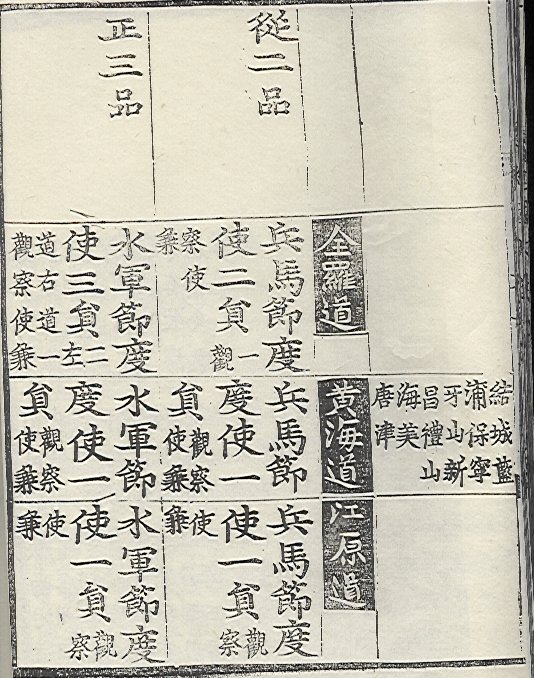 從二品
正三品
全羅道
兵馬節度
使二貟一觀
察使
兼
水軍節度
使三貟二左
道右道一
觀察使兼
結城藍
浦保寧
牙山新
昌禮山
海美
唐津
黃海道
兵馬節
度使一
貟觀察
使兼
水軍節
度使一
貟觀察
使兼
江原道
兵馬節度
使一貟觀察
使兼
水軍節度
使一貟觀察
使兼